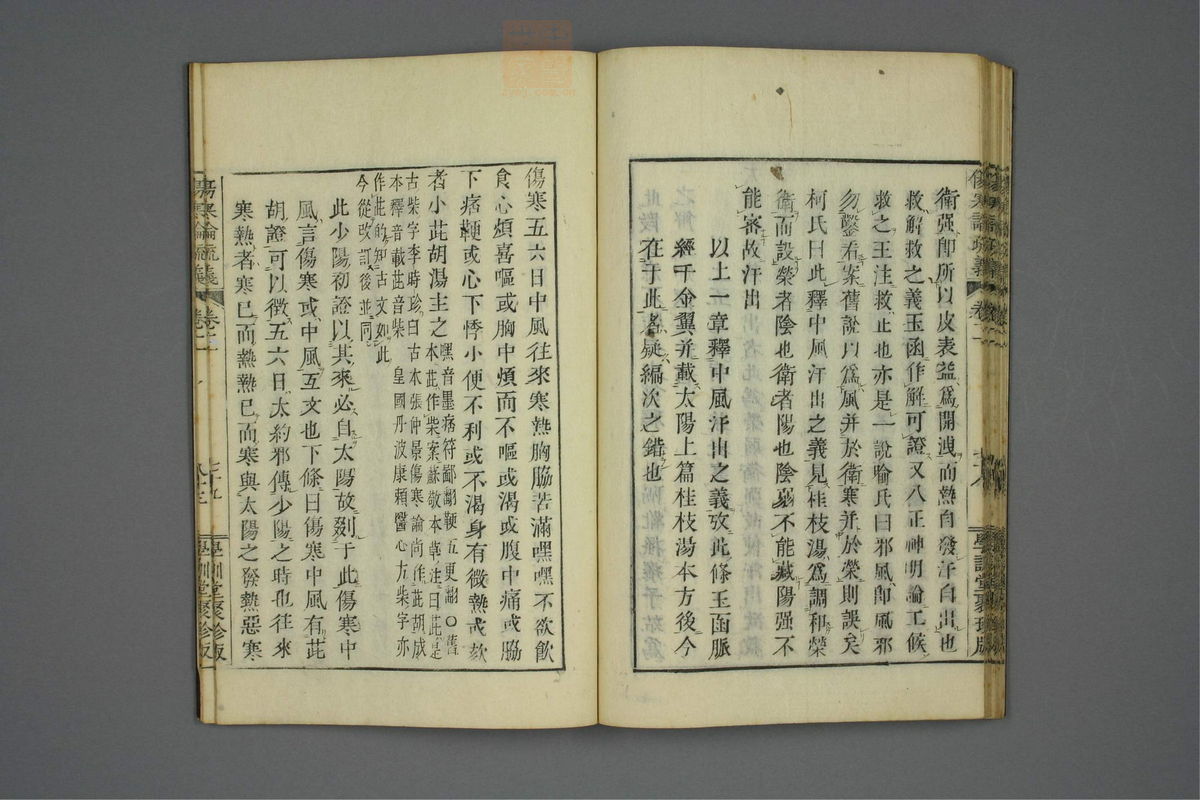 衛强卽所以皮表益爲開洩而熱自發汗自出也
救解救之義玉函作解可證又八正神明論工候
救之王注救止也亦是一說喩氏曰邪風卽風邪
勿鑿看案舊說以爲風并於衛寒并於榮則誤矣
柯氏曰此釋中風汗出之義見桂枝湯爲調和榮
衛而設榮者陰也衛者陽也陰弱不能藏陽强不
能密故汗出
以上一章釋中風汗出之義攷此條玉函脈
經千金翼并載太陽上篇桂枝湯本方後今
在于此者疑編次之錯也
傷寒五六日中風往來寒熱胸脇苦滿嘿嘿不欲飮
食心煩喜嘔或胸中煩而不嘔或渴或腹中痛或脇
下痞鞕或心下悸小便不利或不渴身有微熱或欬
者小茈胡湯主之
嘿音墨痞符鄙翻鞕五更翻〇舊
本茈作柴案蘇敬本草注曰茈是
古柴字李時珍曰古本張仲景傷寒論尚作茈胡成
本釋音載茈音柴 皇國丹波康賴醫心方柴字亦
作茈的知古文如此
今從改訂後並同
此少陽初證以其來必自太陽故剟于此傷寒中
風言傷寒或中風互文也下條曰傷寒中風有茈
胡證可以徵五六日大約邪傳少陽之時也往來
寒熱者寒已而熱熱已而寒與太陽之發熱惡寒
傷寒論疏義
卷二
學訓堂聚珍版